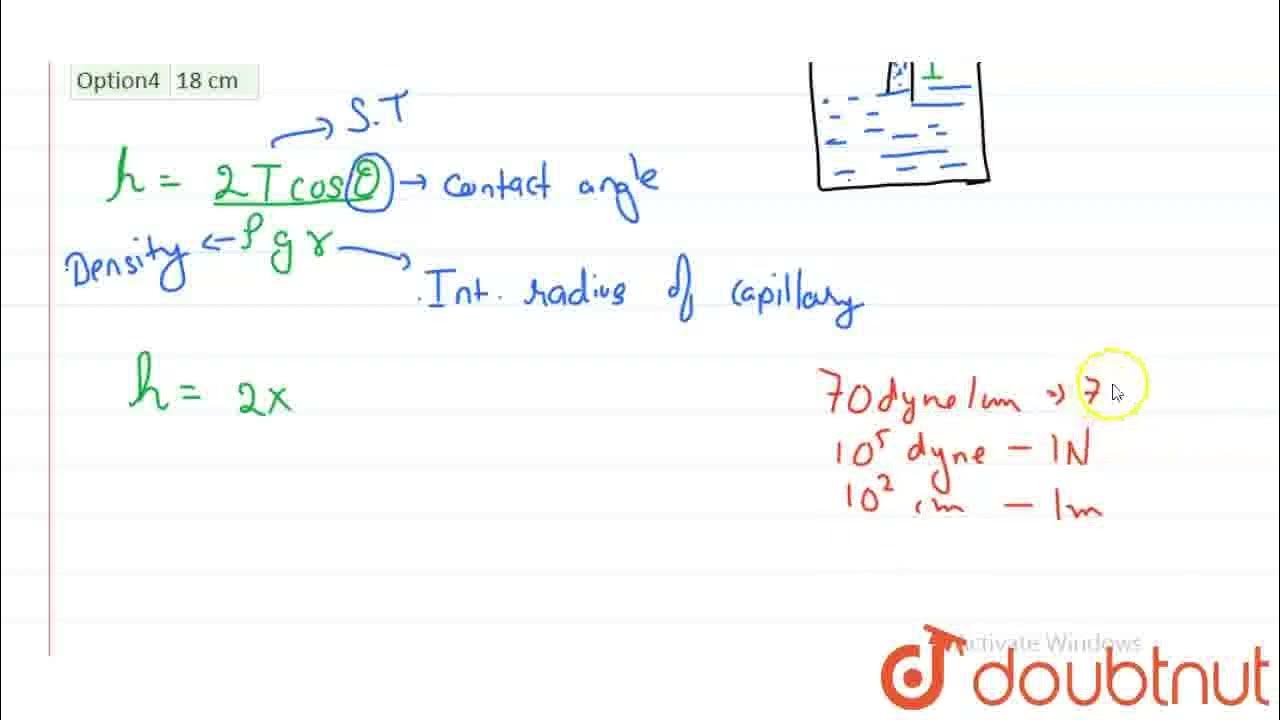 Option4 18 cm
S.T
h = 2T cosθ → contact angle
Density ← ρ g r →
Int. radius of capillary
h = 2×
70 dyne/cm ⇒ 7
10⁵ dyne – 1N
10² cm – 1m
Activate Windows
doubtnut